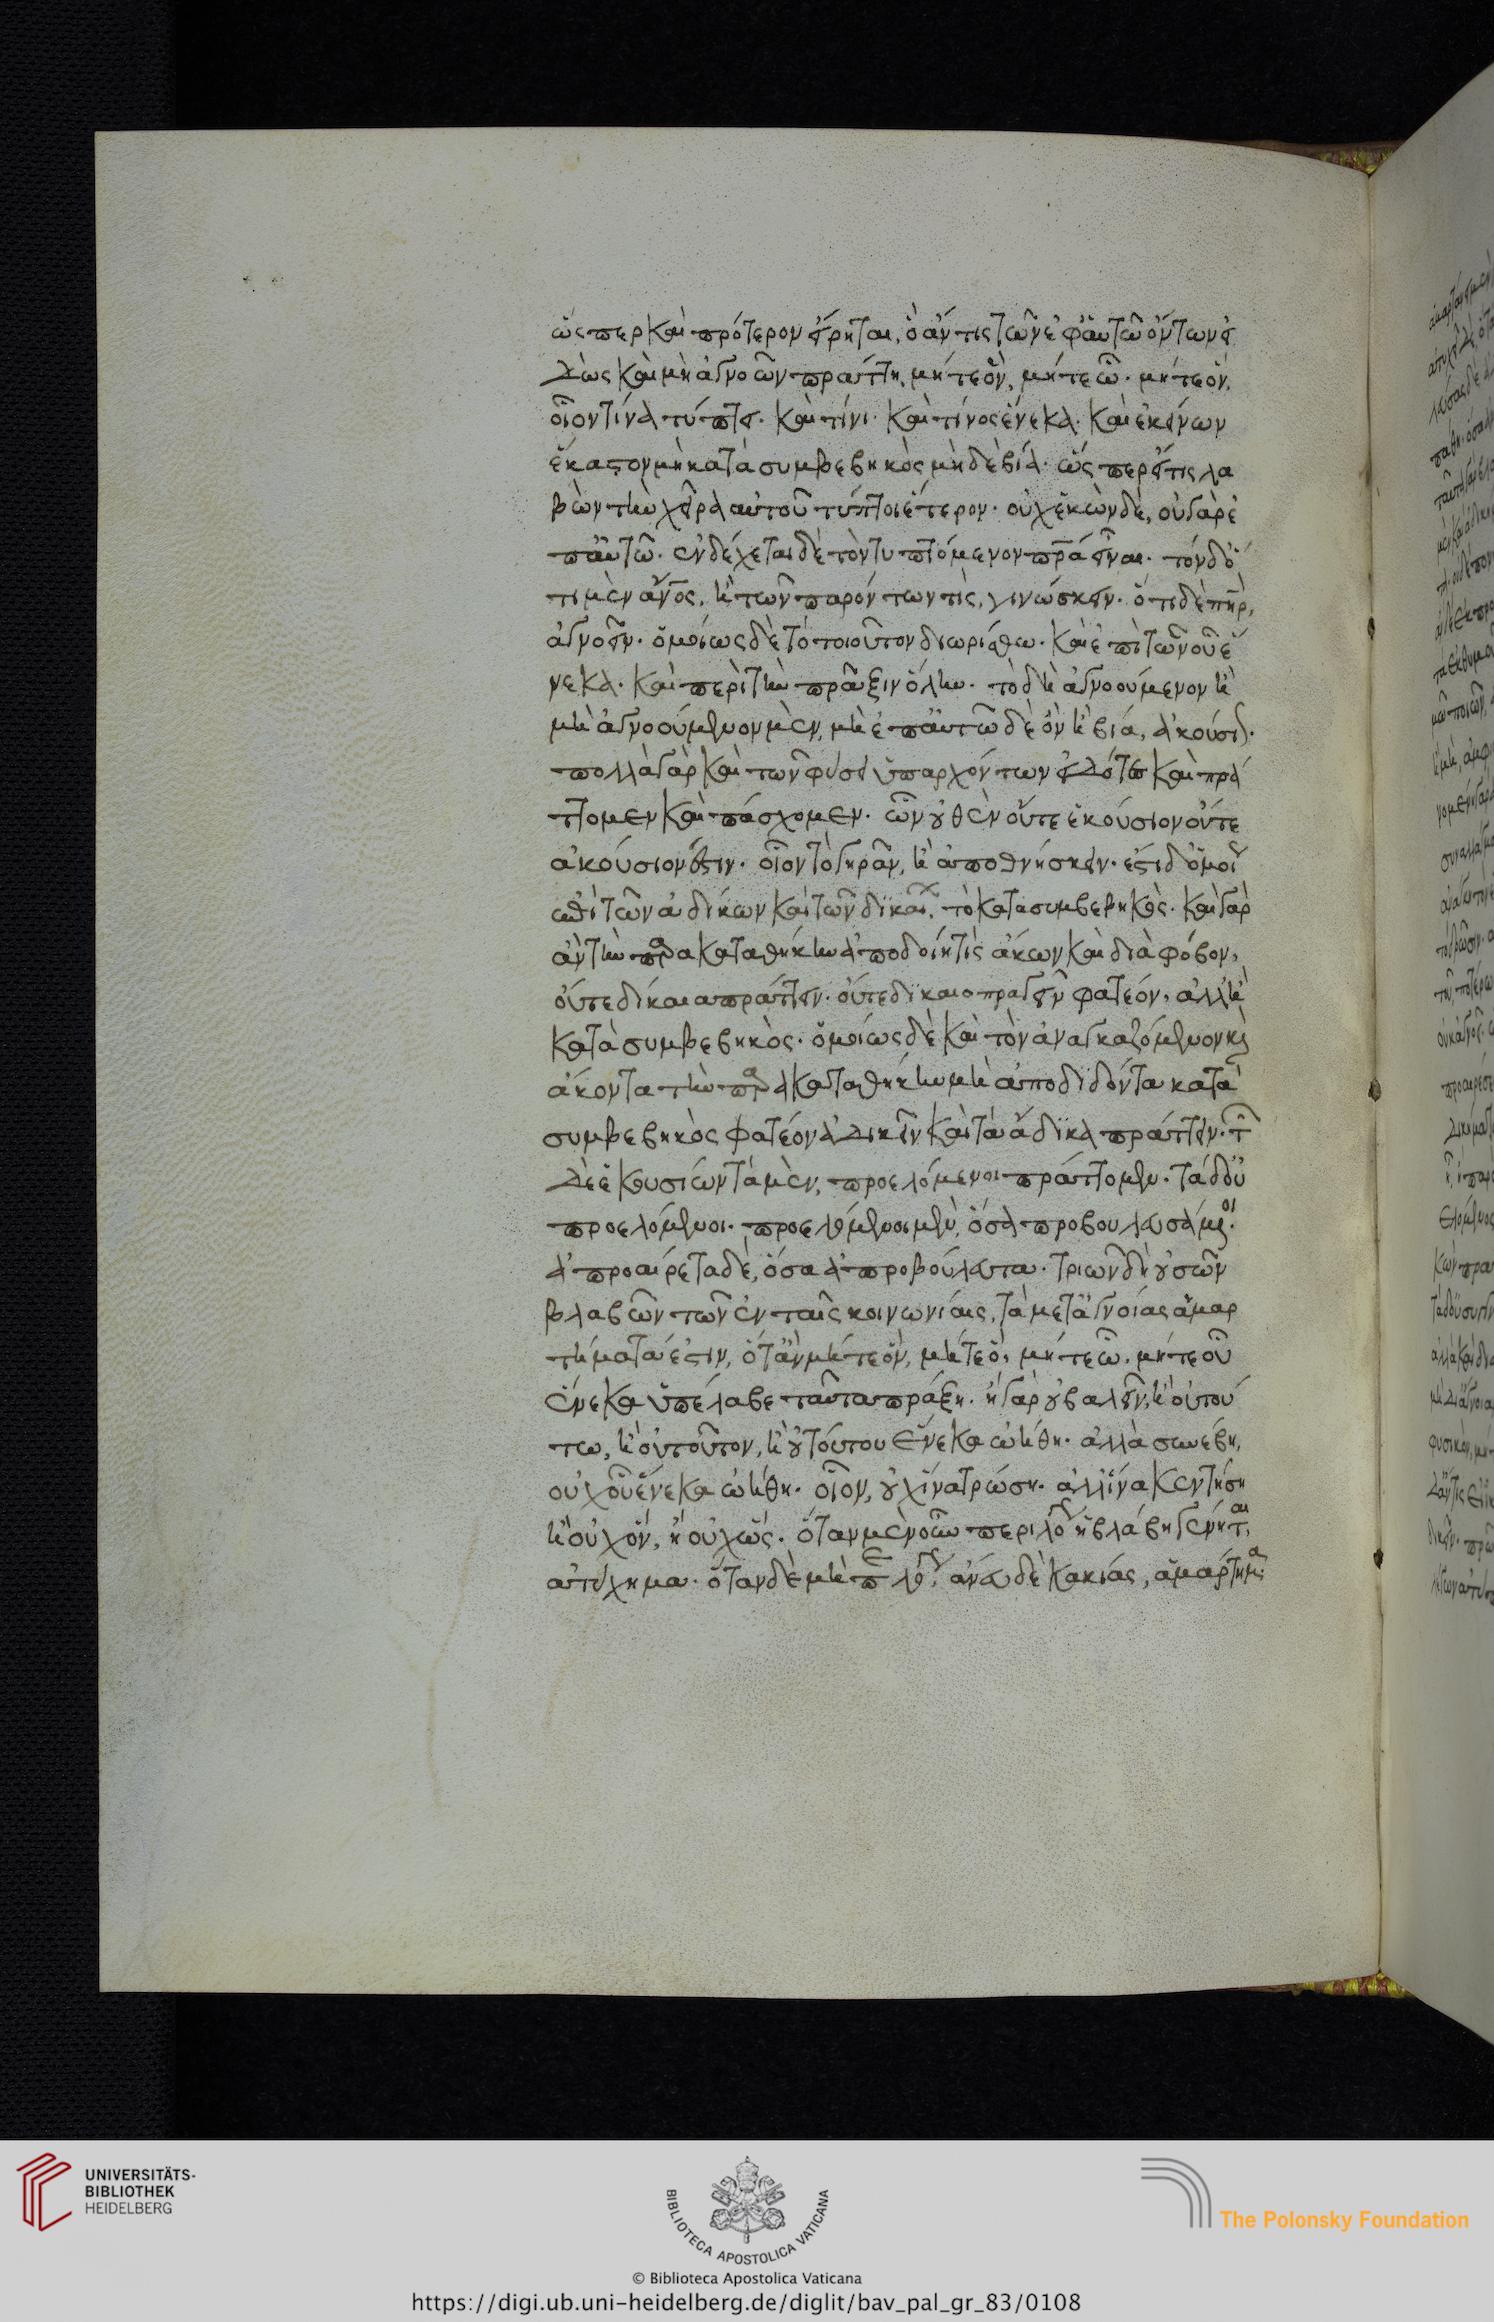 ὥσπερ καὶ πρότερον εἴρηται, ὃ ἄν τις τῶν ἐφ' αὑτῶ ὄντων εἰ
δὼς καὶ μὴ ἀγνοῶν πράττη, μήτε ὃν, μήτε ὧ. μήτε ὅν,
οἷον τίνα τύπτει. καὶ τίνι. καὶ τίνος ἕνεκα. καὶ ἐκείνων
ἕκαστον μὴ κατὰ συμβεβηκὸς μηδὲ βία. ὥς περ εἴ τις λα
βὼν τὴν χεῖρα αὐτοῦ τύπτοι ἕτερον. οὐχ ἑκὼν δέ, οὐ γὰρ ἐ
π' αὐτῶ. ἐνδέχεται δὲ τὸν τυπτόμενον πρα εἶναι. τὸν δ' ὅ
τι μὲν ἄνος, ἢ τῶν παρόντων τίς, γινώσκειν. ὅτι δὲ πηρ,
ἀγνοεῖν. ὁμοίως δὲ τὸ τοιοῦτον διωρίσθω. καὶ ἐπὶ τῶν οὗ ἕ
νεκα. καὶ περὶ τὴν πρᾶξιν ὅλην. τὸ δὴ ἀγνοούμενον ἢ
μὴ ἀγνοούμενον μὲν, μὴ ἐπ' αὐτῶ δὲ ὂν ἢ βία, ἀκούσι.
πολλὰ γὰρ καὶ τῶν φύσει ὑπαρχόντων εἰδότες καὶ πρά
ττομεν καὶ πάσχομεν. ὧν οὐθὲν οὔτε ἑκούσιον οὔτε
ἀκούσιόν ἐστιν. οἷον τὸ γηρᾶν, ἢ ἀποθνήσκειν. ἔστι δ' ὁμοί
ἐπὶ τῶν ἀδίκων καὶ τῶν δικαί. τὸ κατασυμβεβηκὸς. καὶ γὰρ
ἂν τὴν παρακαταθήκην ἀποδοίη τὶς ἄκων καὶ διὰ φόβον,
οὔτε δίκαια πράττειν. οὔτε δικαιοπραγεῖν φατέον, ἀλλ' ἢ
κατὰ συμβεβηκὸς. ὁμοίως δὲ καὶ τὸν ἀναγκαζόμενον καὶ
ἄκοντα τὴν παρακαταθήκην μὴ ἀποδιδόντα κατὰ
συμβεβηκὸς φατέον ἀδικεῖν καὶ τὰ ἄδικα πράττειν. τ
δὲ ἑκουσίων τὰ μὲν, προελόμενοι πράττομεν. τὰ δ' οὐ
προελόμενοι. προελόμενοι μὲν, ὅσα προβουλευσάμενοι.
ἀπροαίρετα δὲ, ὅσα ἀπροβούλευτα. τριῶν δὴ οὐσῶν
βλαβῶν τῶν ἐν ταῖς κοινωνίαις, τὰ μετ' ἀγνοίας ἁμαρ
τήματά ἐστιν, ὅταν μήτε ὃν, μήτε ὃ, μήτε ὧ. μήτε οὗ
ἕνεκα ὑπέλαβε ταῦτα πράξη. ἢ γὰρ οὐ βαλεῖν, ἢ οὐ τού
τω, ἢ οὐ τοῦτον, ἢ οὐ τούτου ἕνεκα ὠήθη. ἀλλὰ συνέβη,
οὐχ οὗ ἕνεκα ὠήθη. οἷον, οὐχ ἵνα τρώση. ἀλλ' ἵνα κεντήση
ἢ οὐχ ὅν, ἢ οὐχ ὥς. ὅταν μὲν οὖν παραλόγ ἡ βλάβη γένηται,
ἀτύχημα. ὅταν δὲ μὴ παραλόγ, ἄνευ δὲ κακίας, ἁμάρτημα.
UNIVERSITÄTS-
BIBLIOTHEK
HEIDELBERG
BIBLIOTECA APOSTOLICA VATICANA
The Polonsky Foundation
© Biblioteca Apostolica Vaticana
https://digi.ub.uni-heidelberg.de/diglit/bav_pal_gr_83/0108